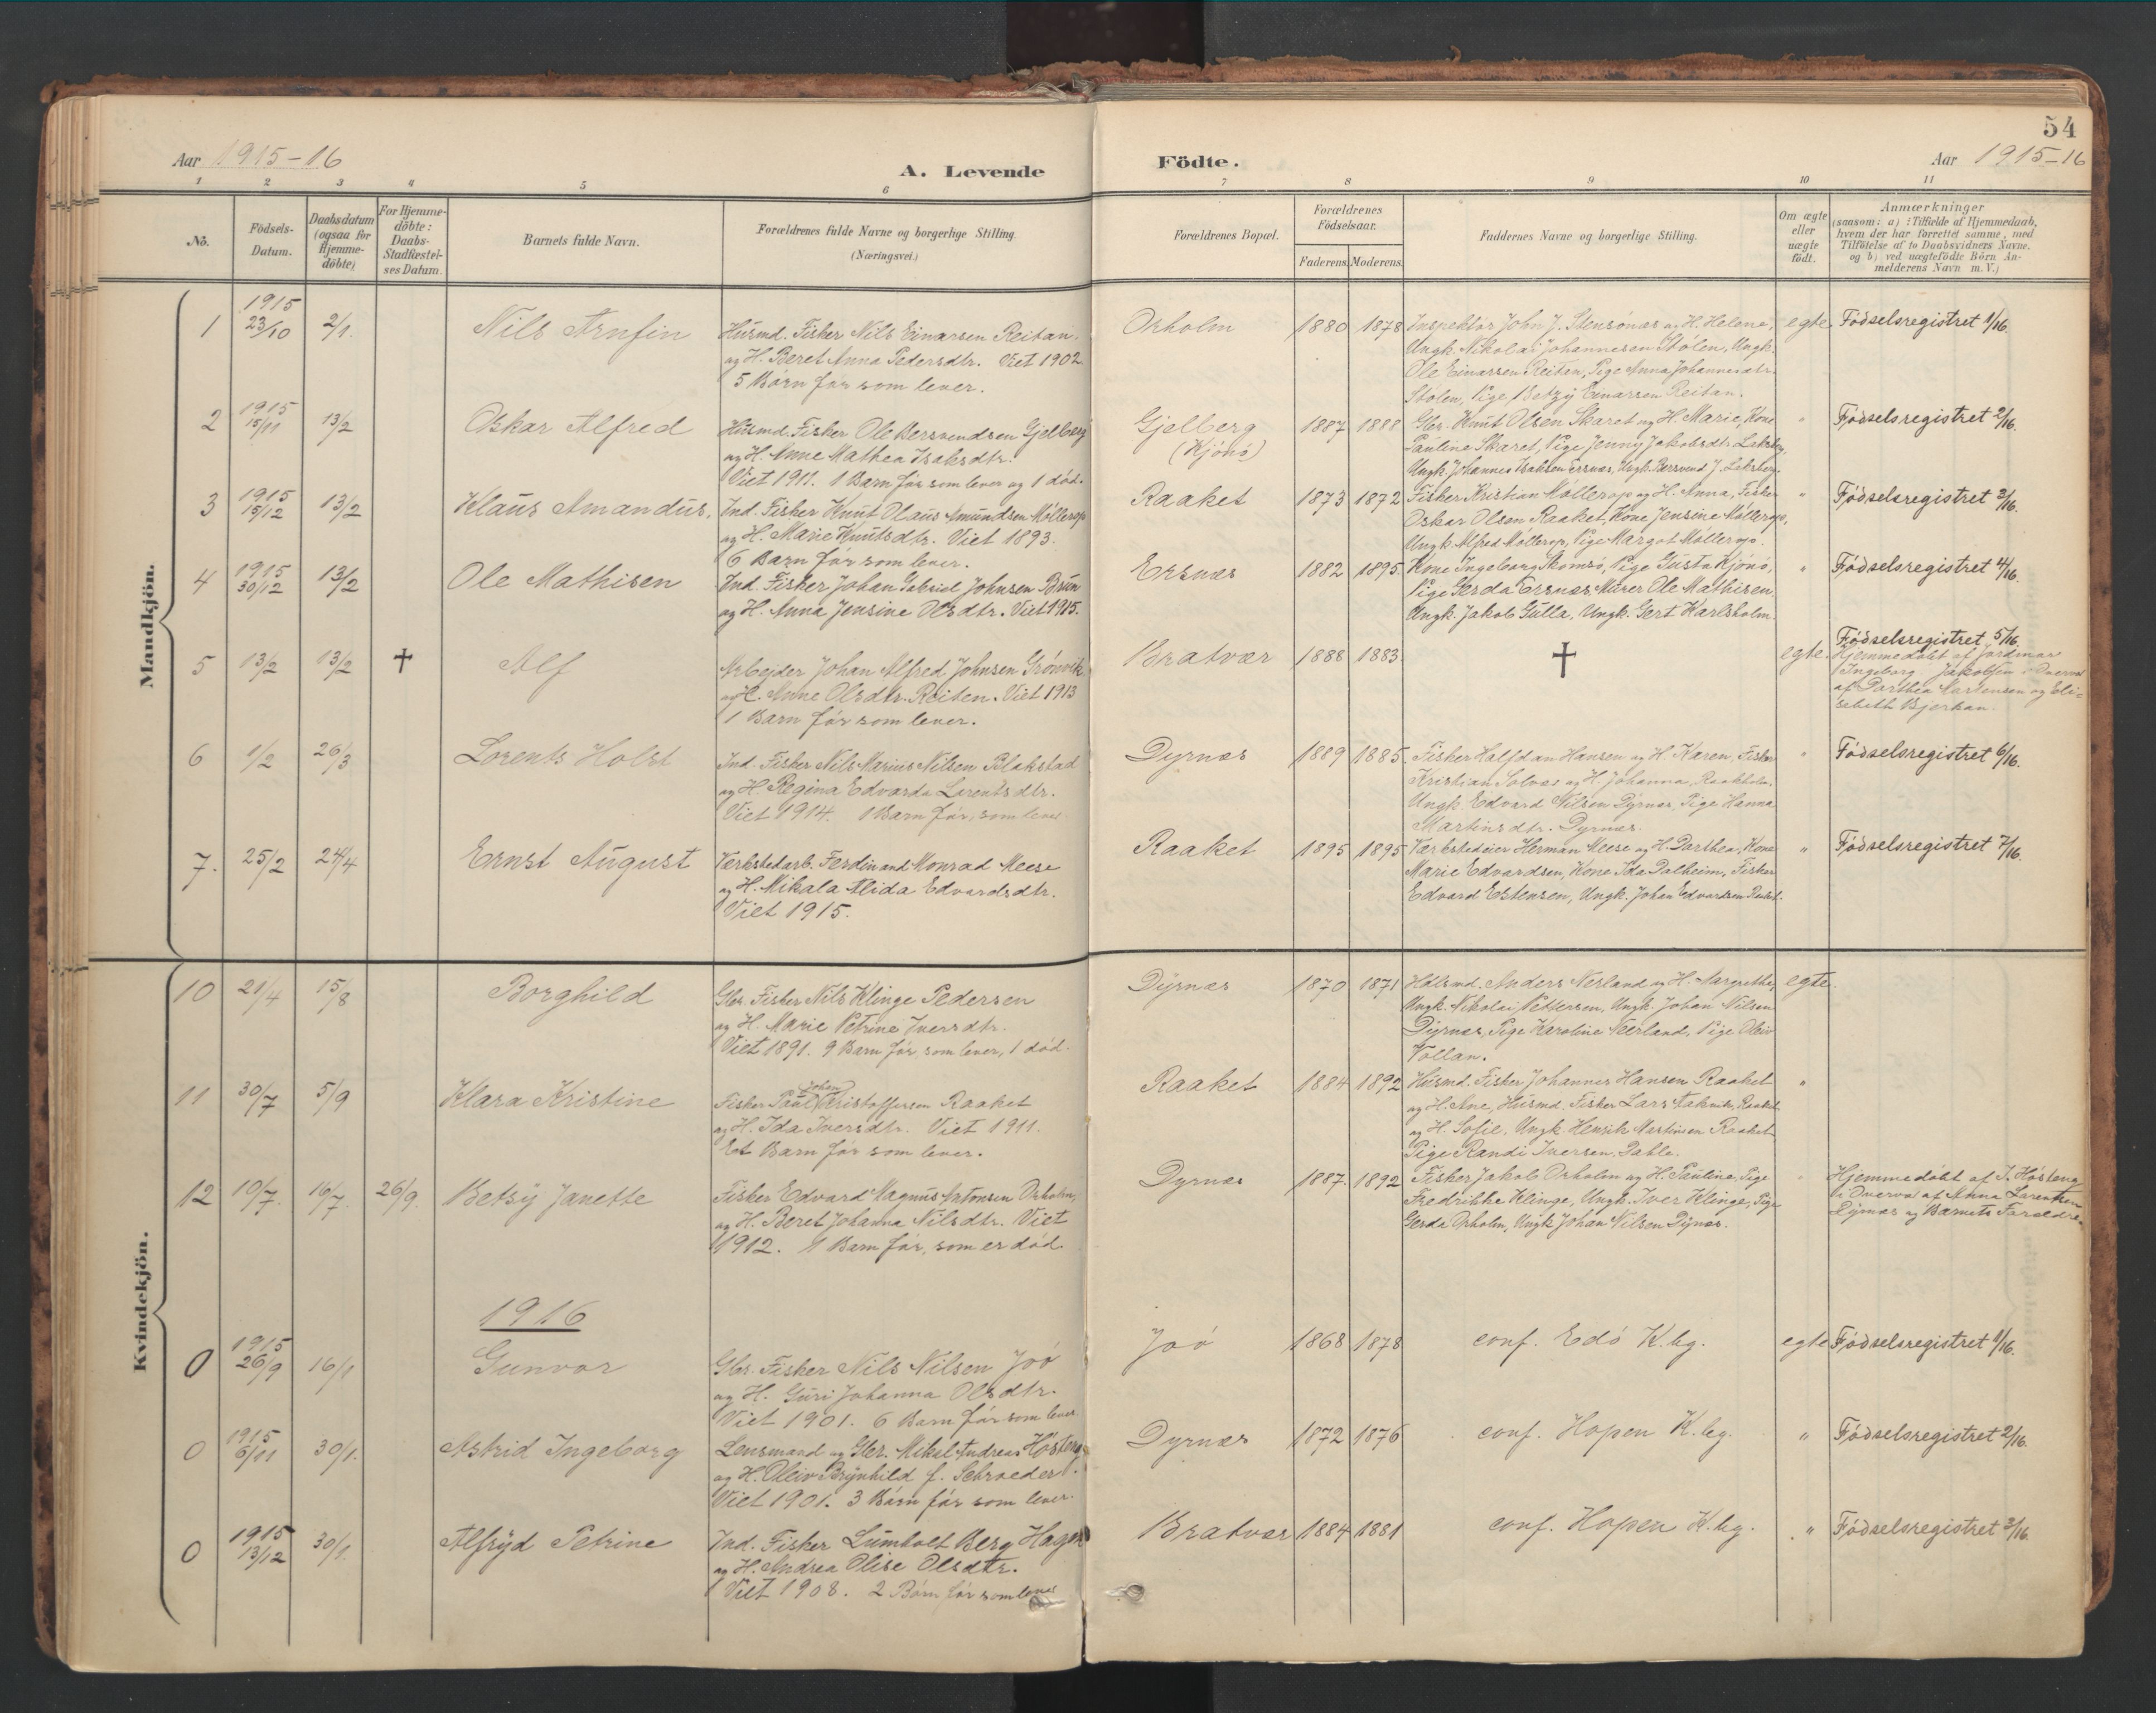 54
Aar 1915-16
A. Levende
Födte.
Aar 1915-16
1 2 3 4 5 6 7 8 9 10 11
No.
Födsels-
Datum.
Daabsdatum
(ogsaa for
Hjemme-
döbte)
For Hjemme-
döbte:
Daabs-
Stadfæstel-
ses Datum.
Barnets fulde Navn.
Forældrenes fulde Navne og borgerlige Stilling.
(Næringsvei.)
Forældrenes Bopæl.
Forældrenes
Födselsaar.
Faderens. Moderens.
Faddernes Navne og borgerlige Stilling.
Om ægte
eller
uægte
födt.
Anmærkninger
(saasom: a) i Tilfælde af Hjemmedaab,
hvem der har forrettet samme, med
Tilföielse af to Daabsvidners Navne.
og b) ved uægtefödte Börn An-
melderens Navn m. V.)
Mandkjön.
1
1915
23/10
2/1.
Nils Arnfin
Husmd. Fisker Nils Einarsen Reitan
og H. Beret Anna Pedersdtr. Viet 1902
5 Börn før som lever.
Orholm
1880 1878
Inspektør John J. Stensönes og H. Helene,
Ungk. Nikolai Johannesen Stölen, Ungk.
Ole Einarsen Reiten, Pige Anna Johannesdtr.
Stölen, Pige Betzy Einarsen Reitan.
egte.
Födselsregistret 1/16.
2
1915
15/11
13/2
Oskar Alfred
Husmd. Fisker Ole Bersvendsen Gjelberg
og H. Anne Mathea Isaksdtr.
Viet 1911. 1 Barn før som lever og 1 død.
Gjelberg
(Kjönö)
1887 1888
Gbr. Knut Olsen Skaret og H. Marie, Kone
Pauline Skaret, Pige Jenny Jakobsdtr. Leksberg,
Ungk. Johannes Isaksen Ersnæs, Ungk. Bersvend J. Leksberg.
"
Födselsregistret 2/16.
3
1915
15/12
13/2
Klaus Amandus.
Ind. Fisker Knut Olaus Amundsen Möllerop
og H. Marie Knutsdtr. Viet 1893.
6 Barn før som lever.
Raaket
1873 1872
Fisker Kristian Möllerop og H. Anna, Fisker
Oskar Olsen Raaket, Kone Jensine Möllerop,
Ungk. Alfred Möllerop, Pige Margot Möllerop.
"
Födselsregistret 3/16.
4
1915
30/12
13/2
Ole Mathisen
Ind. Fisker Johan Gabriel Johnsen Brun
og H. Anna Jensine Olsdtr. Viet 1915.
Ersnæs
1882 1895.
Kone Ingeborg Skomsö, Pige Gusta Kjönö,
Pige Gerda Ersnæs, Murer Ole Mathisen
Ungk. Jakob Gulla, Ungk. Gert Karlsholm.
"
Födselsregistret 4/16.
5
13/2
13/2
†
Alf
Arbejder Johan Alfred Johnsen Grönvik
og H. Anne Olsdtr. Reiten. Viet 1913
1 Barn før som lever.
Bratvær
1888 1883.
†
egte.
Födselsregistret 5/16
Hjemmedöbt af Jordmor
Ingeborg Jakobsen i Overvær
af Dorthea Martensen og Eli-
sebeth Bjerkan.
6
1/2
26/3
Lorents Holst
Ind. Fisker Nils Marius Nilsen Blakstad
og H. Regina Edvarda Lorentsdtr.
Viet 1914. 1 Barn før, som lever
Dyrnæs
1889 1885
Fisker Halfdan Hansen og H. Karen, Fisker
Kristian Solvær og H. Johanna,
Ungk. Edvard Nilsen Dyrnæs, Pige Hanna
Martinsdtr. Dyrnæs.
"
Födselsregistret 6/16.
7.
25/2
24/4
Ernst August
Verkstedarb. Ferdinand Konrad Meese
og H. Mikala Alida Edvardsdtr.
Viet 1915.
Raaket
1895 1895
Værkstedeier Herman Meese og H. Dorthea, Kone
Marie Edvardsen, Kone Ida Dalheim, Fisker
Edvard Estensen, Ungk. Johan Edvardsen Raaket.
"
Födselsregistret 7/16.
Kvindekjön.
10
21/4
15/8
Borghild
Gbr. Fisker Nils Klinge Pedersen
og H. Marie Petrine Iversdtr.
Viet 1891. 9 Barn før, som lever, 1 död.
Dyrnæs
1870 1871
Hdlsmd. Anders Nerland og H. Margrethe,
Ungk. Nikolai Pettersen, Ungk. Johan Nilsen
Dyrnæs, Pige Karoline Neerland, Pige Oleiv
Vollan.
egte.
11
30/7
5/9
Klara Kristine
Johan
Fisker Paul Kristoffersen Raaket
og H. Ida Iversdtr. Viet 1911.
Et Barn før som lever.
Raaket
1884 1892
Husmd. Fisker Johannes Hansen Raaket
og H. Ane, Husmd. Fisker Lars Raket
og H. Sofie, Ungk. Henrik Martinsen Raaket
Pige Randi Iversen. Dahle.
"
12
10/7.
16/7.
26/9.
Betsy Janette
Fisker Edvard Magnus Antonsen Orholm,
og H. Beret Johanna Nilsdtr. Viet
1912. 1 Barn før, som er död.
Dyrnæs
1887. 1892
Fisker Jakob Orholm og H. Pauline, Pige
Fredrikke Klinge, Ungk. Iver Klinge, Pige
Gerda Orholm, Ungk. Johan Nilsen Dyrnæs.
"
Hjemmedöbt af I. Hösteng
i Overvær af Anna Larentsen
Dyrnæs og Barnets Forældre.
1916
0
1915
26/9
16/1
Gunvor
Gbr. Fisker Nils Nilsen Joö
og H. Guri Johanna Olsdtr.
Viet 1901. 6 Barn før som lever
Joö
1868 1878
conf. Edö K.bg.
egte
Födselsregistret 1/16.
0
1915
6/11
30/1.
Astrid Ingeborg
Lensmand og Gbr. Mikal Andreas Hösteng
og H. Oleiv Brynhild f. Schrøder.
Viet 1901. 3 Barn før som lever.
Dyrnæs
1872 1876
conf. Hopen K.bg.
"
Födselsregistret 2/16.
0
1915
13/12
30/1.
Alfryd Petrine
Ind. Fisker Lumholt Berg Hagen
og H. Andrea Olise Olsdtr.
Viet 1908. 2 Barn før som lever
Bratvær
1884 1881
conf. Hopen K.bg.
"
Födselsregistret 3/16.